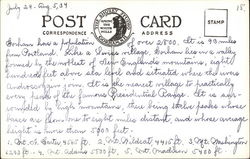 July 24 - Aug 5, 34
15.
POST CARD
STAMP
Gorham has a population of over 2800. It is 93 miles
from Portland. Like a Swiss village, Gorham lies in a valley
formed by the noblest of New England's mountains, eight
hundred feet above sea level and situated where the rivers
Androscoggin join. It is the nearest village to practically
ever peaks of the famous Presidential Range. It is
surrounded by high mountains, their being twelve peaks whose
bases are from one to eight miles distant, and whose average
height is more than 5000 feet.
1. Mt. 4565 ft. 2. Mt. Wildcat 4415 ft. 3. Mt. Washington
6293 ft. 4. Mt. Adams 5800 ft. 5. Mt. Madison 5400 ft.